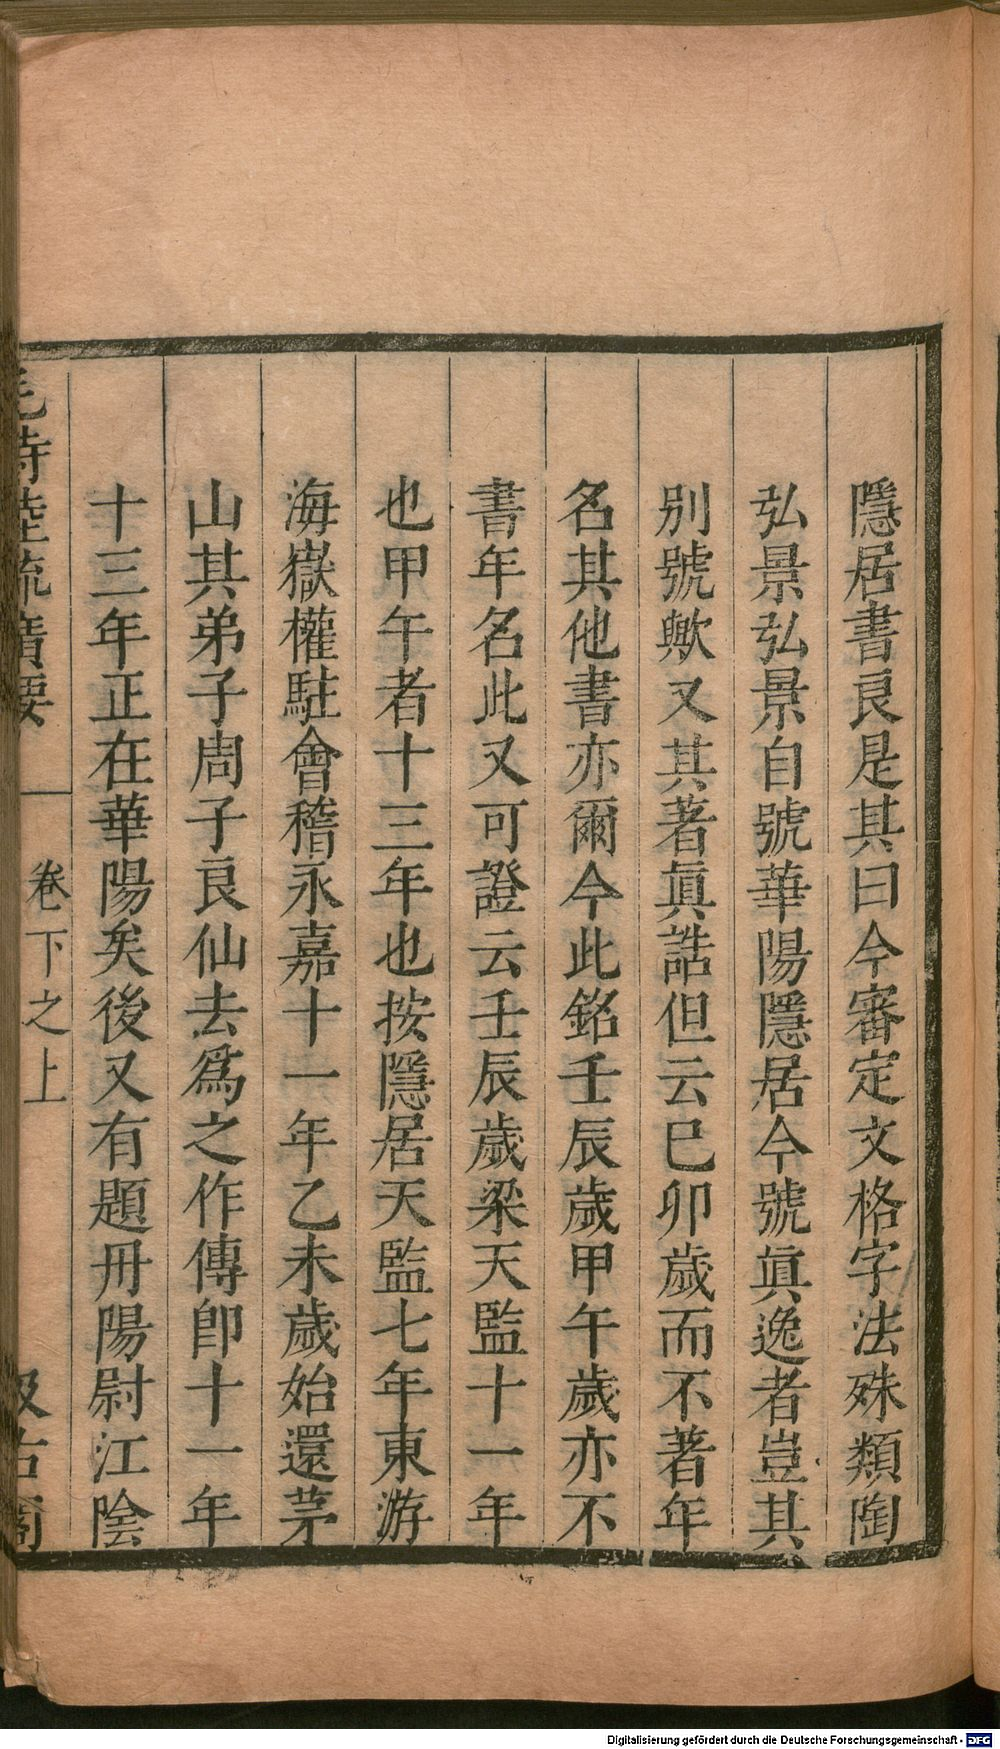 隱居書良是其曰今審定文格字法殊類陶
弘景弘景自號華陽隱居今號眞逸者豈其
別號歟又其著眞誥但云巳卯歲而不著年
名其他書亦爾今此銘壬辰歲甲午歲亦不
書年名此又可證云壬辰歲梁天監十一年
也甲午者十三年也按隱居天監七年東游
海嶽權駐會稽永嘉十一年乙未歲始還茅
山其弟子周子良仙去爲之作傳卽十一年
十三年正在華陽矣後又有題丹陽尉江陰
毛詩陸疏廣要
卷下之上
汲古閣
Digitalisierung gefördert durch die Deutsche Forschungsgemeinschaft - DFG